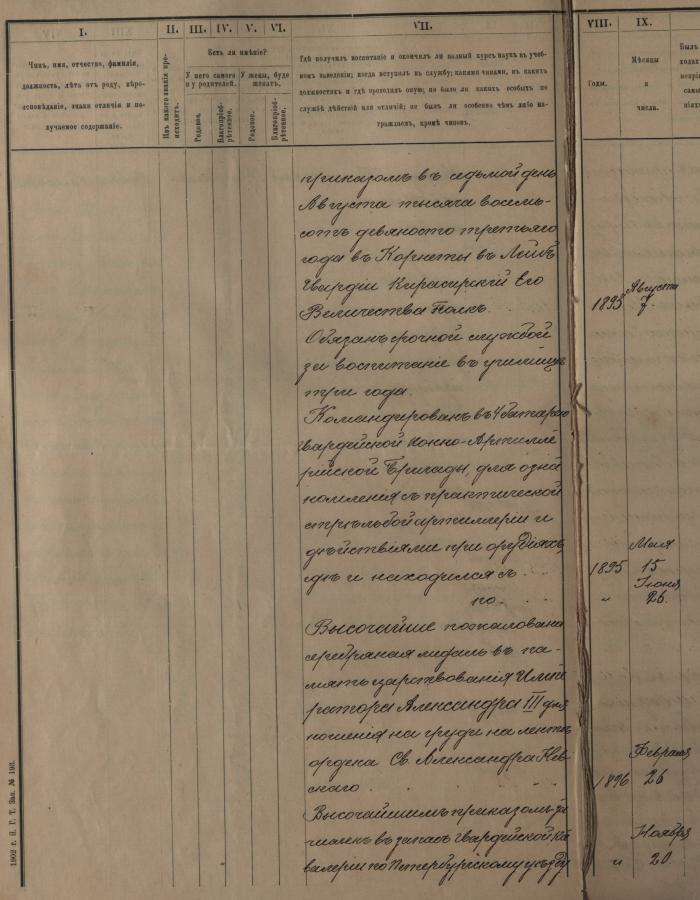 I. II. III. IV. V. VI. VII. VIII. IX.
Чинъ, имя, отчество, фамилія,
должность, лѣта отъ роду, вѣро-
исповѣданіе, знаки отличія и по-
лучаемое содержаніе.
Изъ какого званія про-
исходитъ.
Есть ли имѣніе?
У него самого
и у родителей.
У жены, буде
женатъ.
Родовое.
Благопріоб-
рѣтенное.
Родовое.
Благопріоб-
рѣтенное.
Гдѣ получилъ воспитаніе и окончилъ ли полный курсъ наукъ въ учеб-
номъ заведеніи; когда вступилъ въ службу; какими чинами, въ какихъ
должностяхъ и гдѣ проходилъ оную; не было ли какихъ особыхъ по
службѣ дѣяній или отличій; не былъ ли особенно чѣмъ либо на-
гражденъ, кромѣ чиновъ.
Годы.
Мѣсяцы
и
числа.
Былъ
приказомъ въ седьмой день
Августа тысяча восемь-
сотъ девяносто третьяго
года въ Корнеты въ Лейбъ
Гвардіи Кирасирскій Его
Величества Полкъ. 1893 Августа 7.
Обязанъ срочной службой
за воспитаніе въ училищѣ
три года.
Командированъ въ 4 батарею
Гвардейской Конно-Артилле
рійской Бригады, для озна
комленія съ практической
стрѣльбой артиллеріи и
дѣйствіями при орудіяхъ
гдѣ и находился съ 1895 Мая 15
по " Іюня 26.
Высочайше пожалована
серебряная медаль въ па-
мять царствованія Импе
ратора Александра III для
ношенія на груди на лентѣ
ордена Св. Александра Нев
скаго 1896 Февраля 26
Высочайшимъ приказомъ за
численъ въ запасъ Гвардейской Ка
валеріи по Петербургскому уѣзду " Ноября 20
1902 г. Зак. № 198.